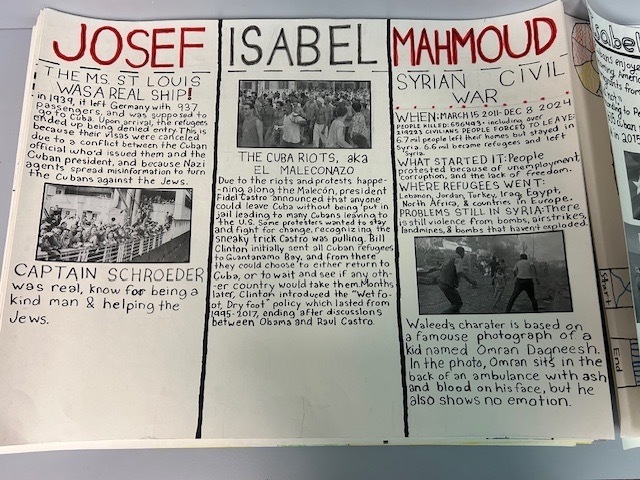 JOSEF
THE MS. ST LOUIS
WAS A REAL SHIP!
in 1939, it left Germany with 937
passengers, and was supposed to
go to Cuba. Upon arrival, the refugees
ended up being denied entry. This is
because their visas were canceled
due to a conflict between the Cuban
official who'd issued them and the
Cuban president, and because Nazi
agents spread misinformation to turn
the Cubans against the Jews.
CAPTAIN SCHROEDER
was real, know for being a
kind man & helping the
Jews.
ISABEL
THE CUBA RIOTS, aka
EL MALECONAZO
Due to the riots and protests happe-
ning along the Malecón, president
Fidel Castro announced that anyone
could leave Cuba without being put in
jail leading to many Cubans leaving to
the U.S. Some protesters wanted to stay
and fight for change, recognizing the
sneaky trick Castro was pulling. Bill
Clinton initially sent all Cuban refugees
to Guantanamo Bay, and from there
they could choose to either return to
Cuba, or to wait and see if any oth-
er country would take them. Months
later, Clinton introduced the "Wet foot,
Dry foot" policy which lasted from
1995-2017, ending after discussions
between Obama and Raul Castro.
MAHMOUD
SYRIAN CIVIL
WAR
WHEN: MARCH 15 2011- DEC 8, 2024
PEOPLE KILLED: 656,493- including over
CIVILIANS PEOPLE FORCED TO LEAVE:
6.7 mil people left their homes but stayed in
Syria. 6.6 mil became refugees and left
Syria.
WHAT STARTED IT: People
protested because of unemployment,
Corruption, and the lack of freedom.
WHERE REFUGEES WENT:
Lebanon, Jordan, Turkey, Iraq, Egypt,
North Africa, & countries in Europe.
PROBLEMS STILL IN SYRIA: There
is still violence from bombs, airstrikes,
landmines, & bombs that havent exploded.
Waleed's charater is based on
a famouse photograph of a
kid named Omran Daqneesh.
In the photo, Omran sits in the
back of an ambulance with ash
and blood on his face, but he
also shows no emotion.
Isabel
enjoye
in 2015
Start
End